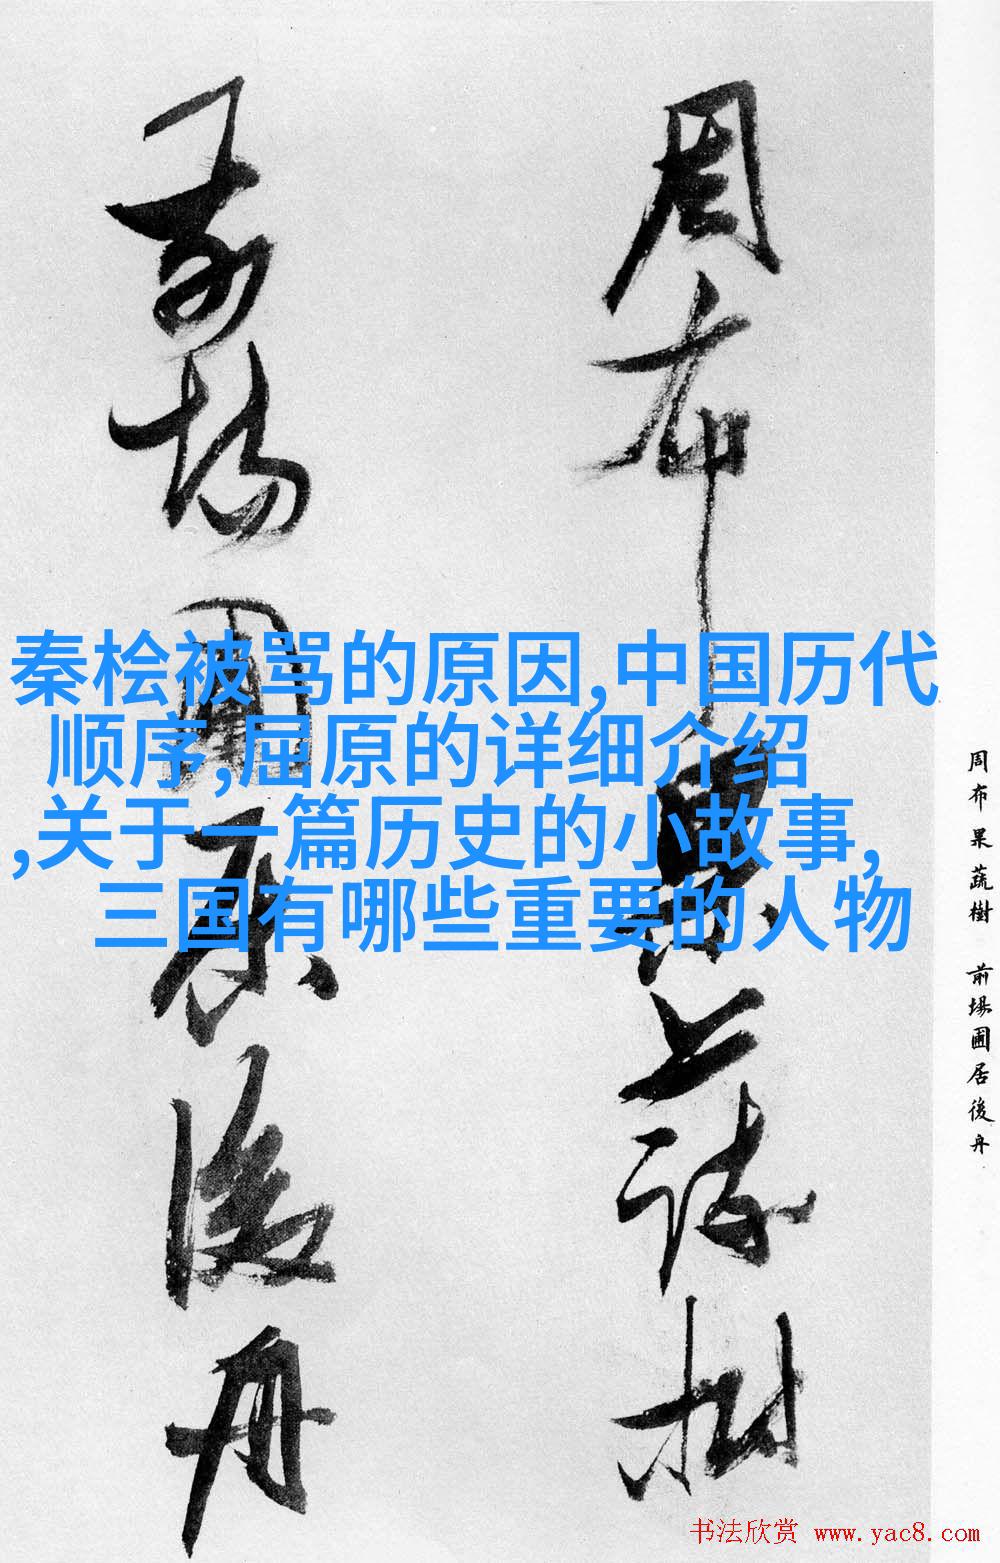 周布果蔬樹
前場圃居後舟
秦桧被骂的原因,中国历代
顺序,屈原的详细介绍
,关于一篇历史的小故事,
三国有哪些重要的人物
周布果蔬樹 前場圃居後舟
书法欣赏 www.yac8.com